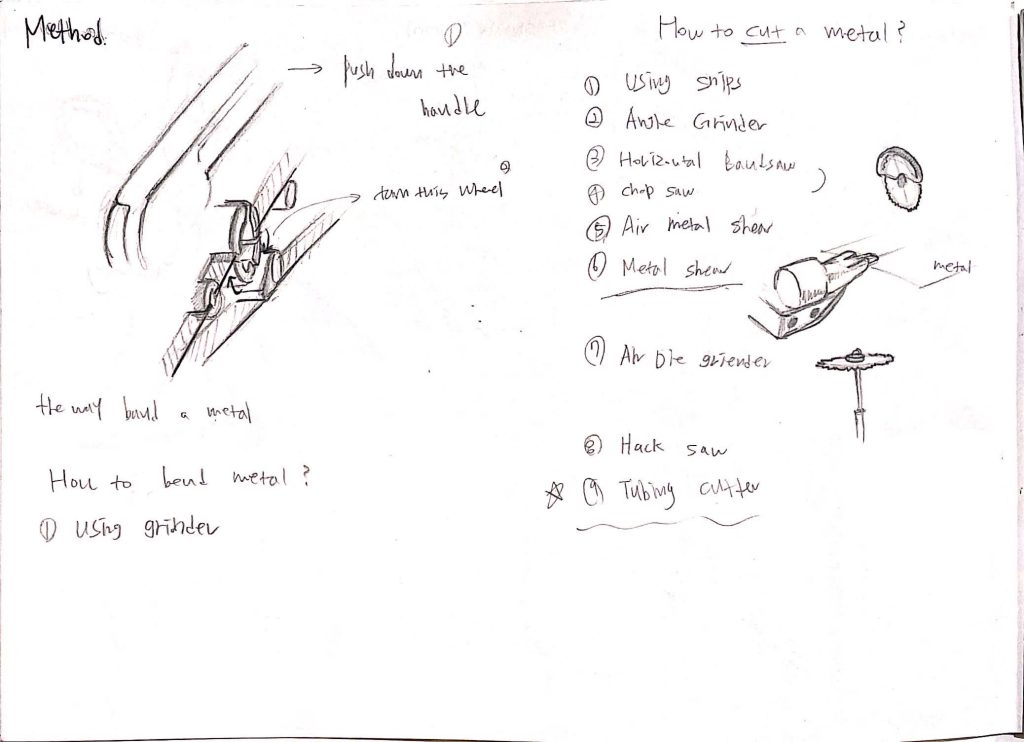 Method.
①
push down the
handle
turn this wheel ②
the way band a metal
How to bend metal?
① Using grinder
How to cut a metal?
① Using snips
② Angle Grinder
③ Horizontal Bandsaw
④ chop saw
⑤ Air metal shear
⑥ Metal shear
metal
⑦ Air Die griender
⑧ Hack saw
☆ ⑨ Tubing cutter